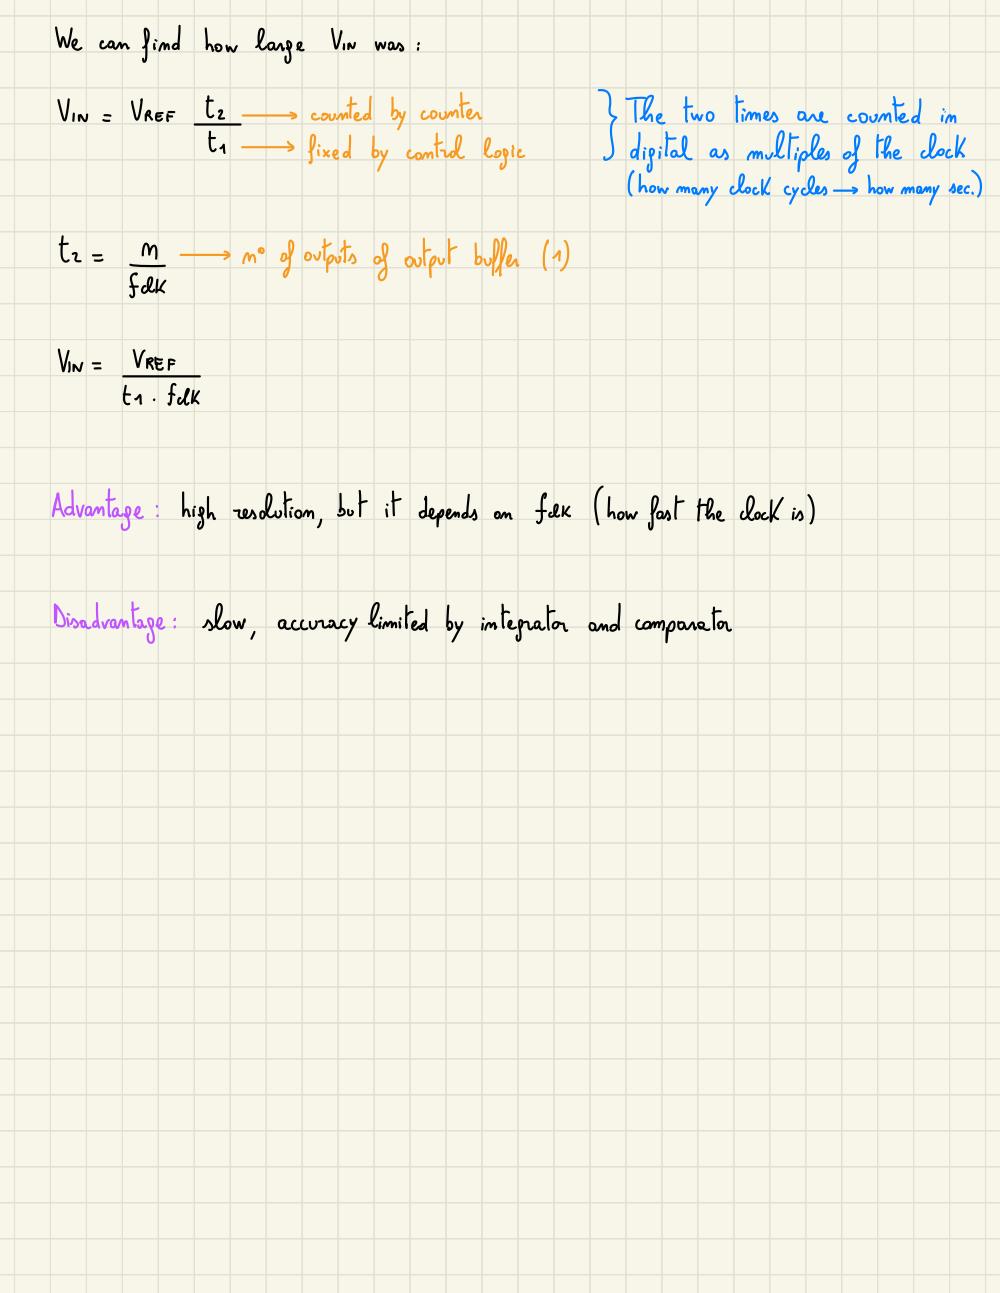 We can find how large VIN was :
VIN = VREF t2/t1
t2 → counted by counter
t1 → fixed by control logic
} The two times are counted in
digital as multiples of the clock
(how many clock cycles → how many sec.)
t2 = n/fclk
n → n° of outputs of output buffer (1)
VIN = VREF/(t1 · fclk)
Advantage : high resolution, but it depends on fclk (how fast the clock is)
Disadvantage : slow, accuracy limited by integrator and comparator